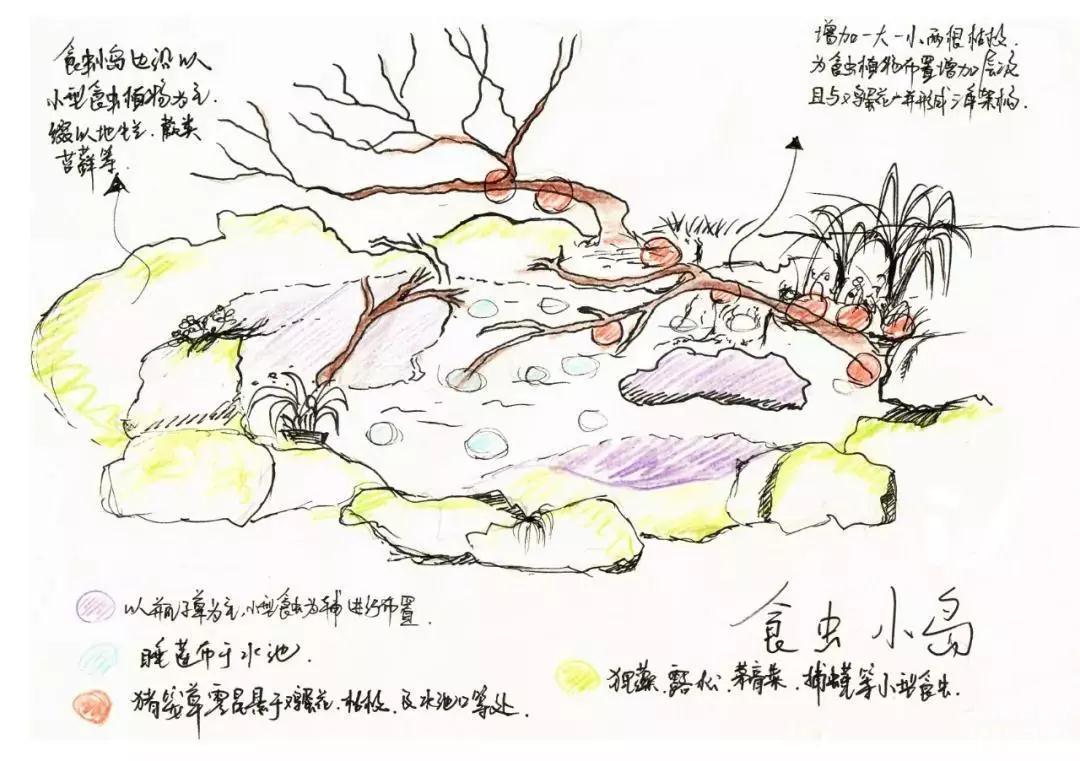 食虫小岛边沿以
小型食虫植物为主.
缀以地生兰.蕨类
苔藓等.
增加一大一小两根枯枝.
为食虫植物布置增加层次
且与鸡蛋花一并形成三角架构.
以瓶子草为主,小型食虫为辅进行布置.
睡莲布于水池.
猪笼草零星悬于鸡蛋花.枯枝.及水池口等处.
食虫小岛
狸藻.露松.茅膏菜.捕蝇等小型食虫.